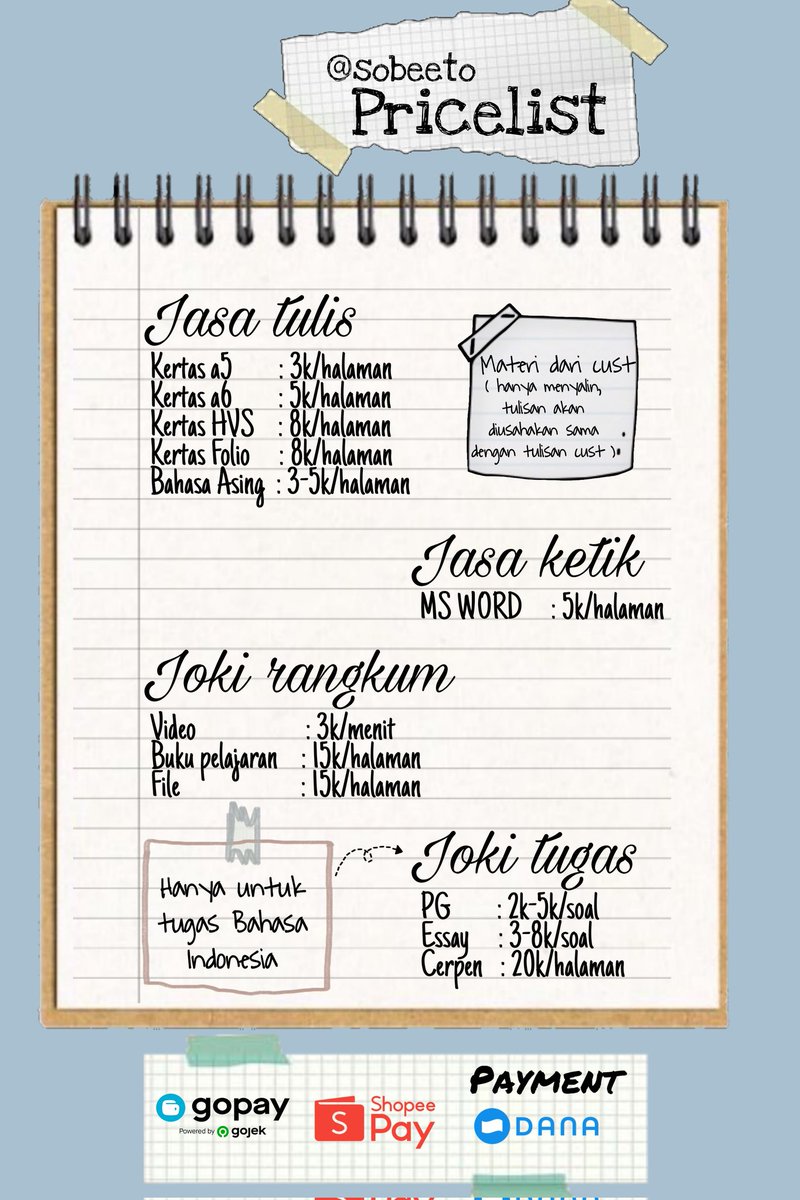 @sobeeto
Pricelist
Jasa tulis
Kertas a5 : 3k/halaman
Kertas a6 : 5k/halaman
Kertas HVS : 8k/halaman
Kertas Folio : 8k/halaman
Bahasa Asing : 3-5k/halaman
Materi dari cust
( hanya menyalin,
tulisan akan
diusahakan sama
dengan tulisan cust )
Jasa ketik
MS WORD : 5k/halaman
Joki rangkum
Video : 3k/menit
Buku pelajaran : 15k/halaman
File : 15k/halaman
Hanya untuk
tugas Bahasa
Indonesia
Joki tugas
PG : 2k-5k/soal
Essay : 3-8k/soal
Cerpen : 20k/halaman
PAYMENT
gopay
Powered by gojek
S Shopee
Pay
DANA